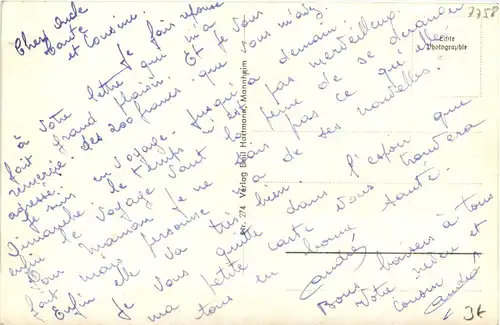 Chers Oncle
Tante
et Cousine.
Je fais réponse
à votre lettre qui m'a
fait grand plaisir. Et je vous
remercie des 200 francs que vous m'avez
adressé.
Je suis en voyage jusqu'à demain
Dimanche. le temps n'est pas merveilleux
enfin le voyage vaut la peine de se déranger
Pour Maman je ne sais pas ce qu'elle
fait mais personne n'a de ses nouvelles.
Enfin elle va très bien
Je vous quitte dans l'espoir que
ma petite carte vous trouvera
tous en bonne santé.
André
Bons baisers à tous
Votre neveu et
Cousin
André
Echte
Photographie
Nr. 274 Verlag Emil Hartmann, Mannheim
7758